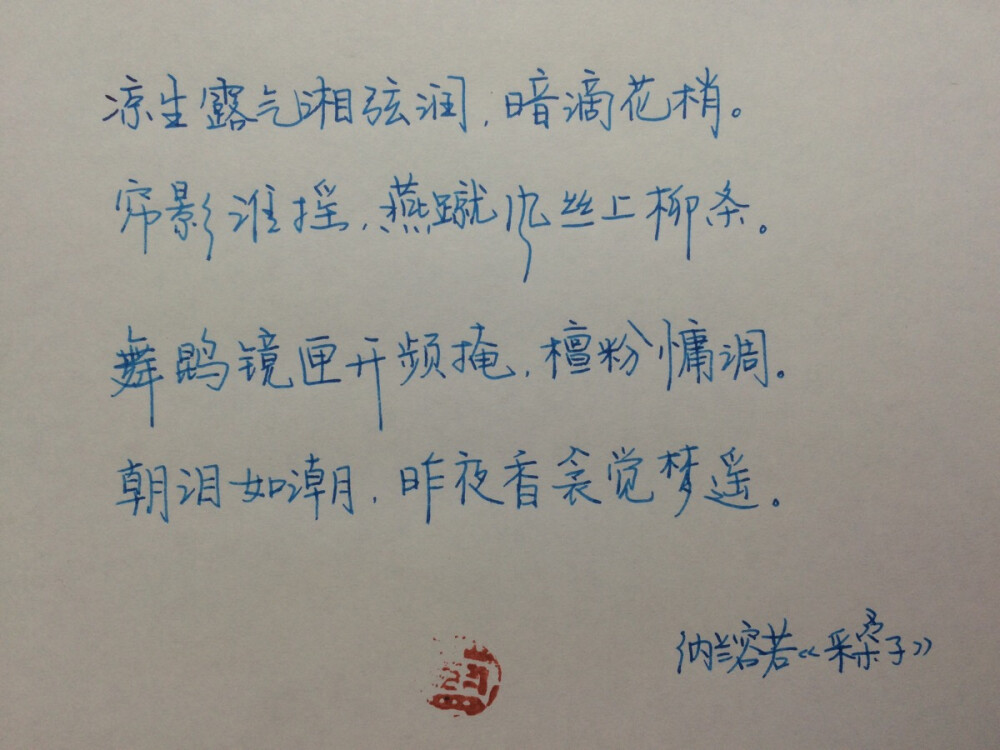 凉生露气湘弦润,暗滴花梢。
帘影谁摇,燕蹴风丝上柳条。
舞鹍镜匣开频掩,檀粉慵调。
朝泪如潮,昨夜香衾觉梦遥。
纳兰容若《采桑子》